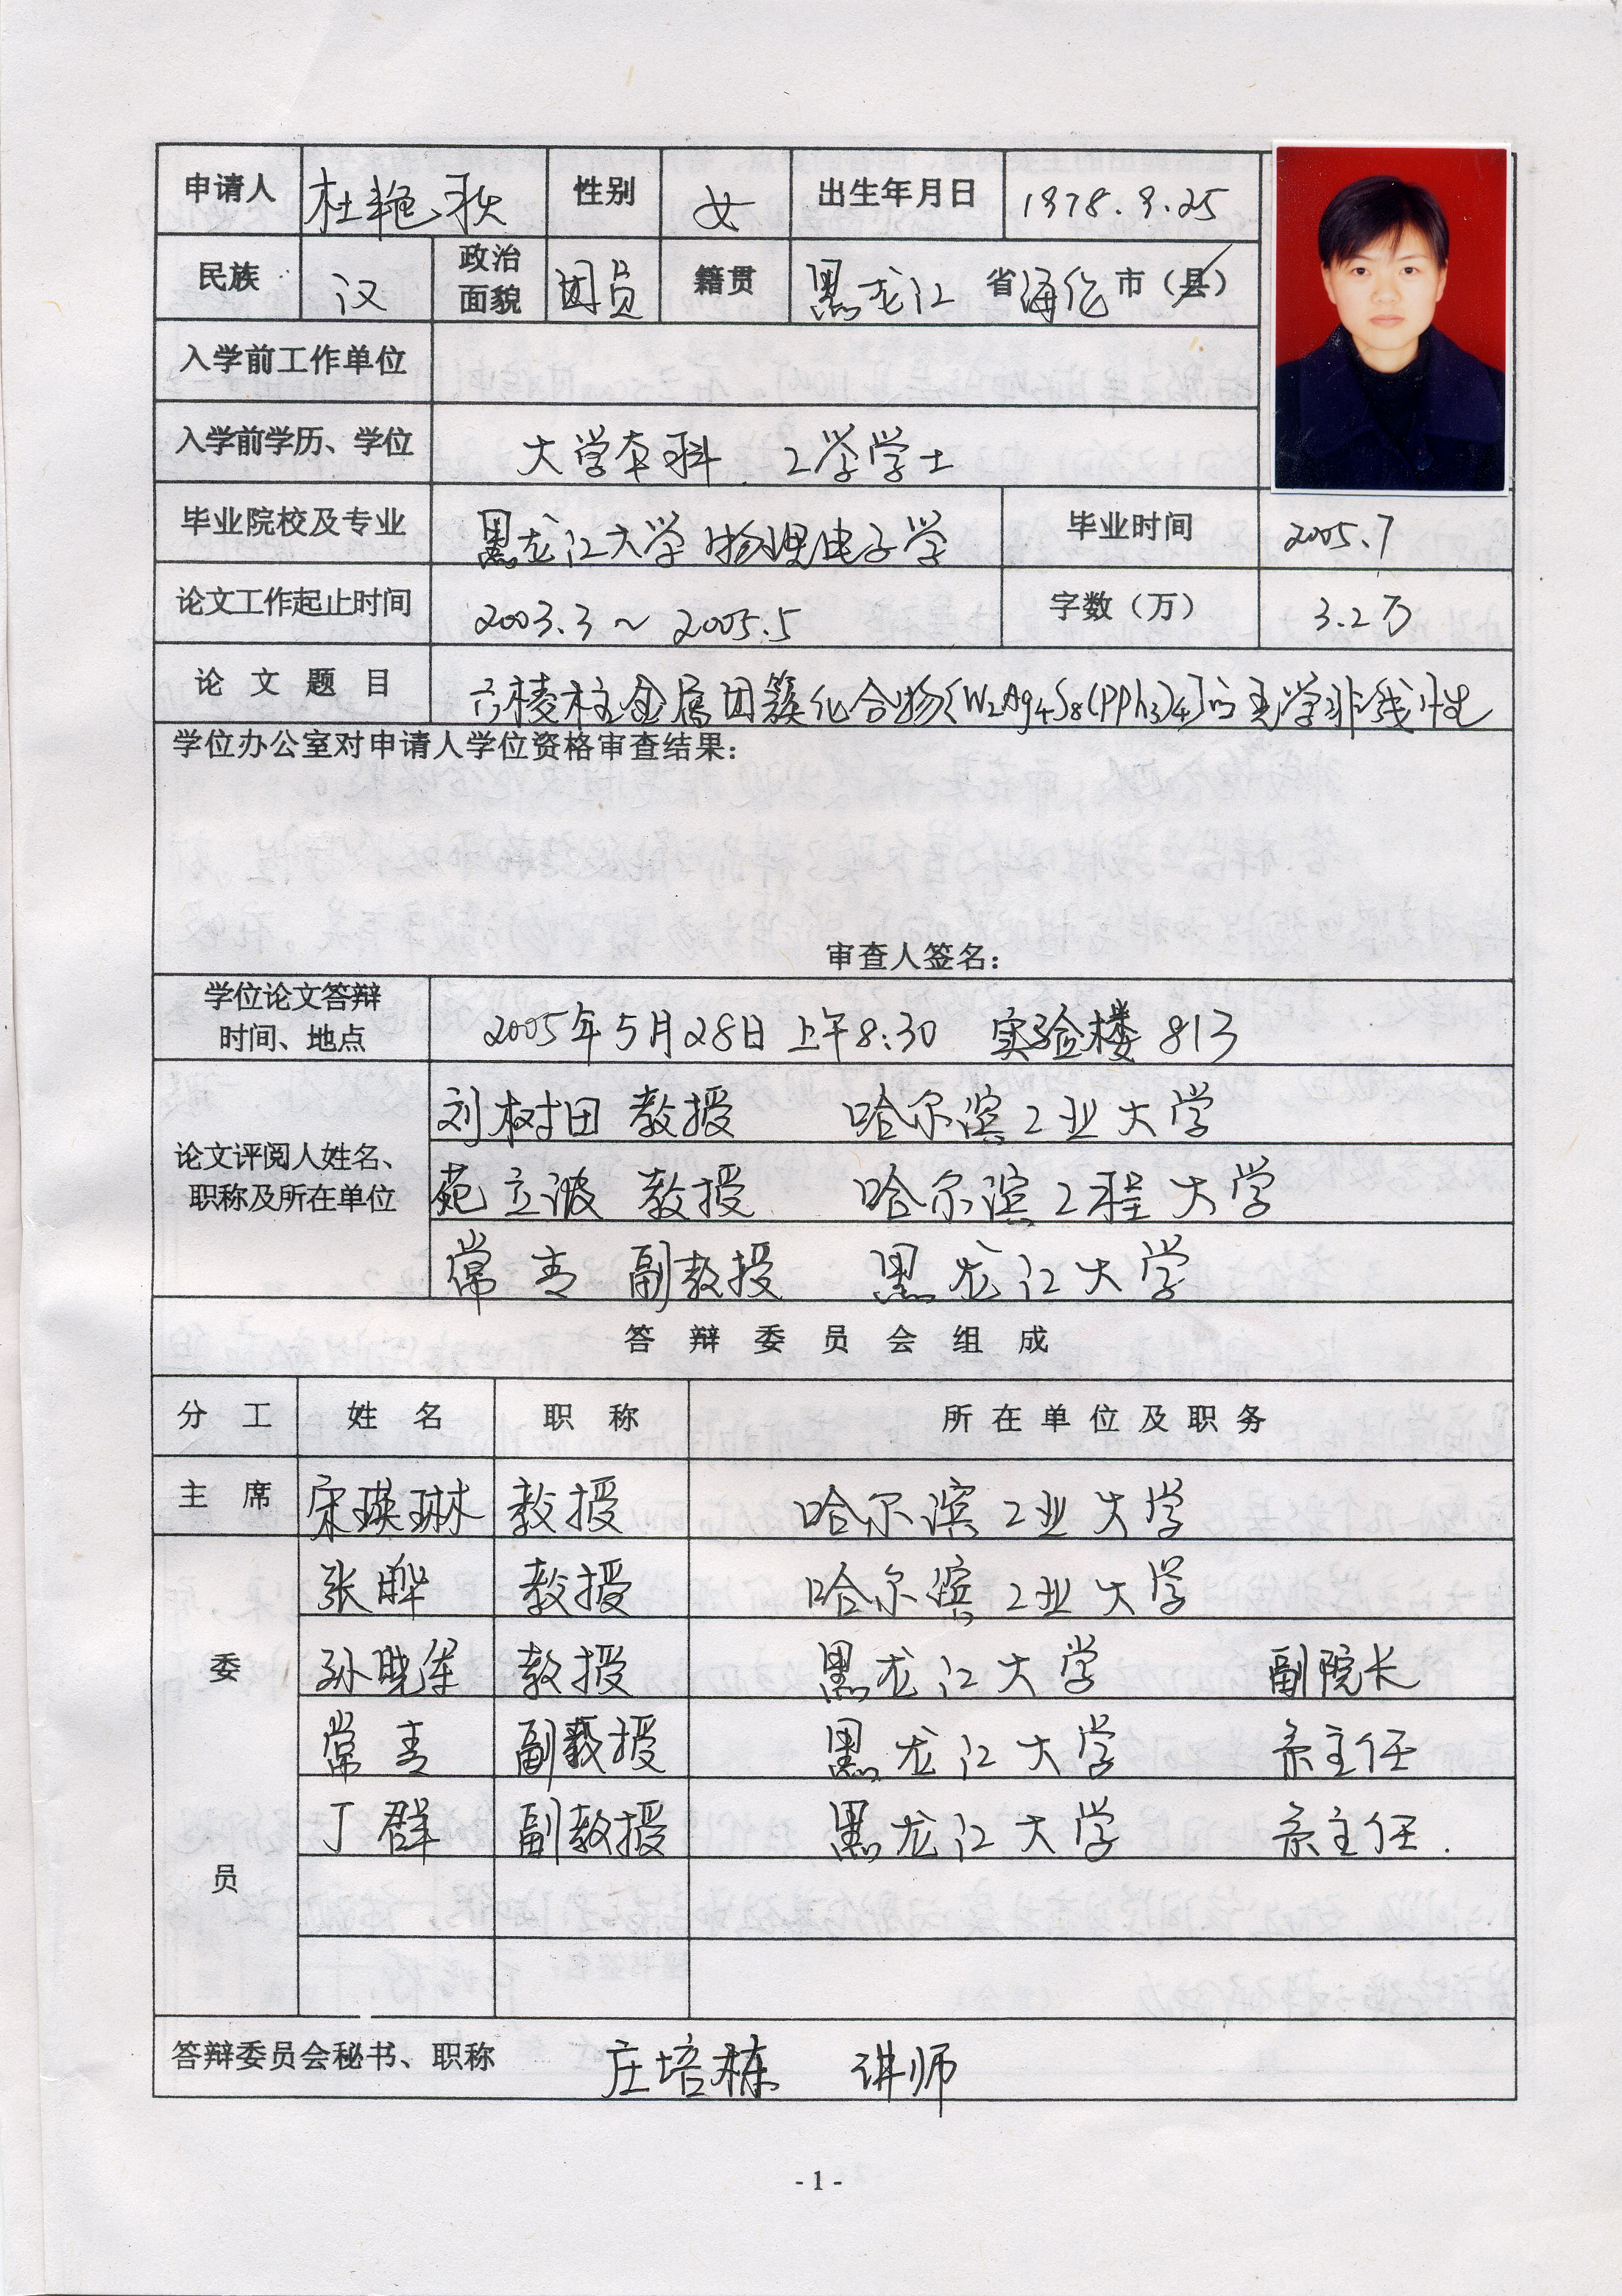 申请人 杜艳秋 性别 女 出生年月日 1978.9.25
民族 汉 政治面貌 团员 籍贯 黑龙江 省 海伦 市（县）
入学前工作单位
入学前学历、学位 大学本科 工学学士
毕业院校及专业 黑龙江大学 物理电子学 毕业时间 2005.7
论文工作起止时间 2003.3～2005.5 字数（万） 3.2万
论文题目 六棱柱金属团簇化合物{W2Ag4S8(PPh3)4}的光学非线性
学位办公室对申请人学位资格审查结果：
审查人签名：
学位论文答辩
时间、地点 2005年5月28日上午8:30 实验楼 813
论文评阅人姓名、
职称及所在单位
刘树田 教授 哈尔滨工业大学
苑立波 教授 哈尔滨工程大学
常青 副教授 黑龙江大学
答辩委员会组成
分工 姓名 职称 所在单位及职务
主席 宋瑛琳 教授 哈尔滨工业大学
委员
张晔 教授 哈尔滨工业大学
孙晓军 教授 黑龙江大学 副院长
常青 副教授 黑龙江大学 系主任
丁群 副教授 黑龙江大学 系主任.
答辩委员会秘书、职称 庄培栋 讲师
- 1 -